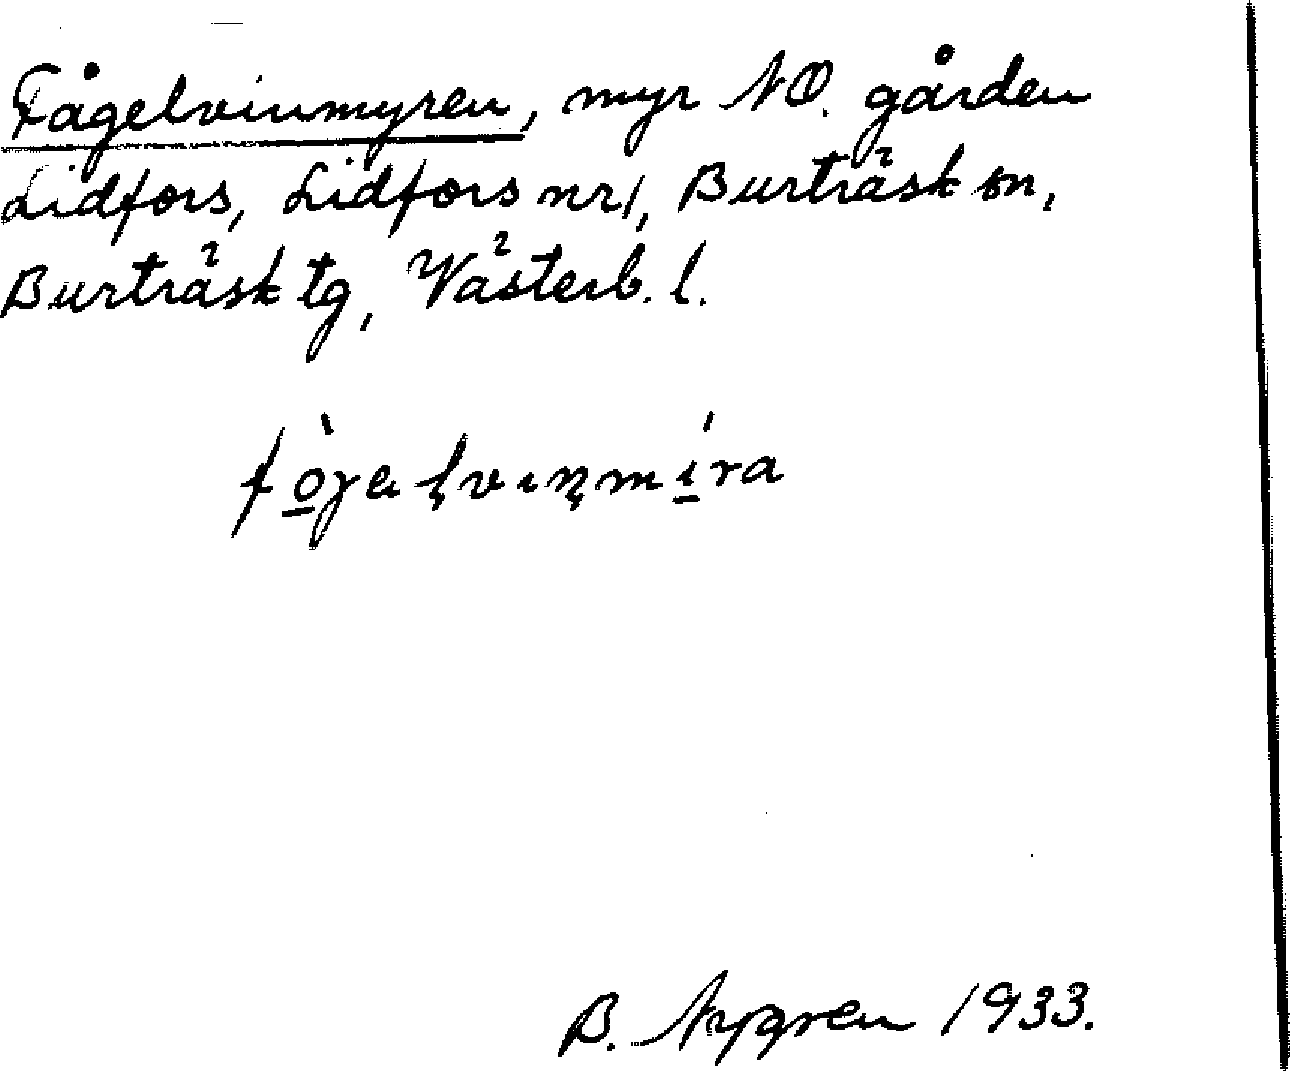 Fågelvinmyren, myr NO. gården
Lidfors, Lidfors nr 1, Burträsk sn,
Burträsk tg, Västerb. l.
B. Nygren 1933.